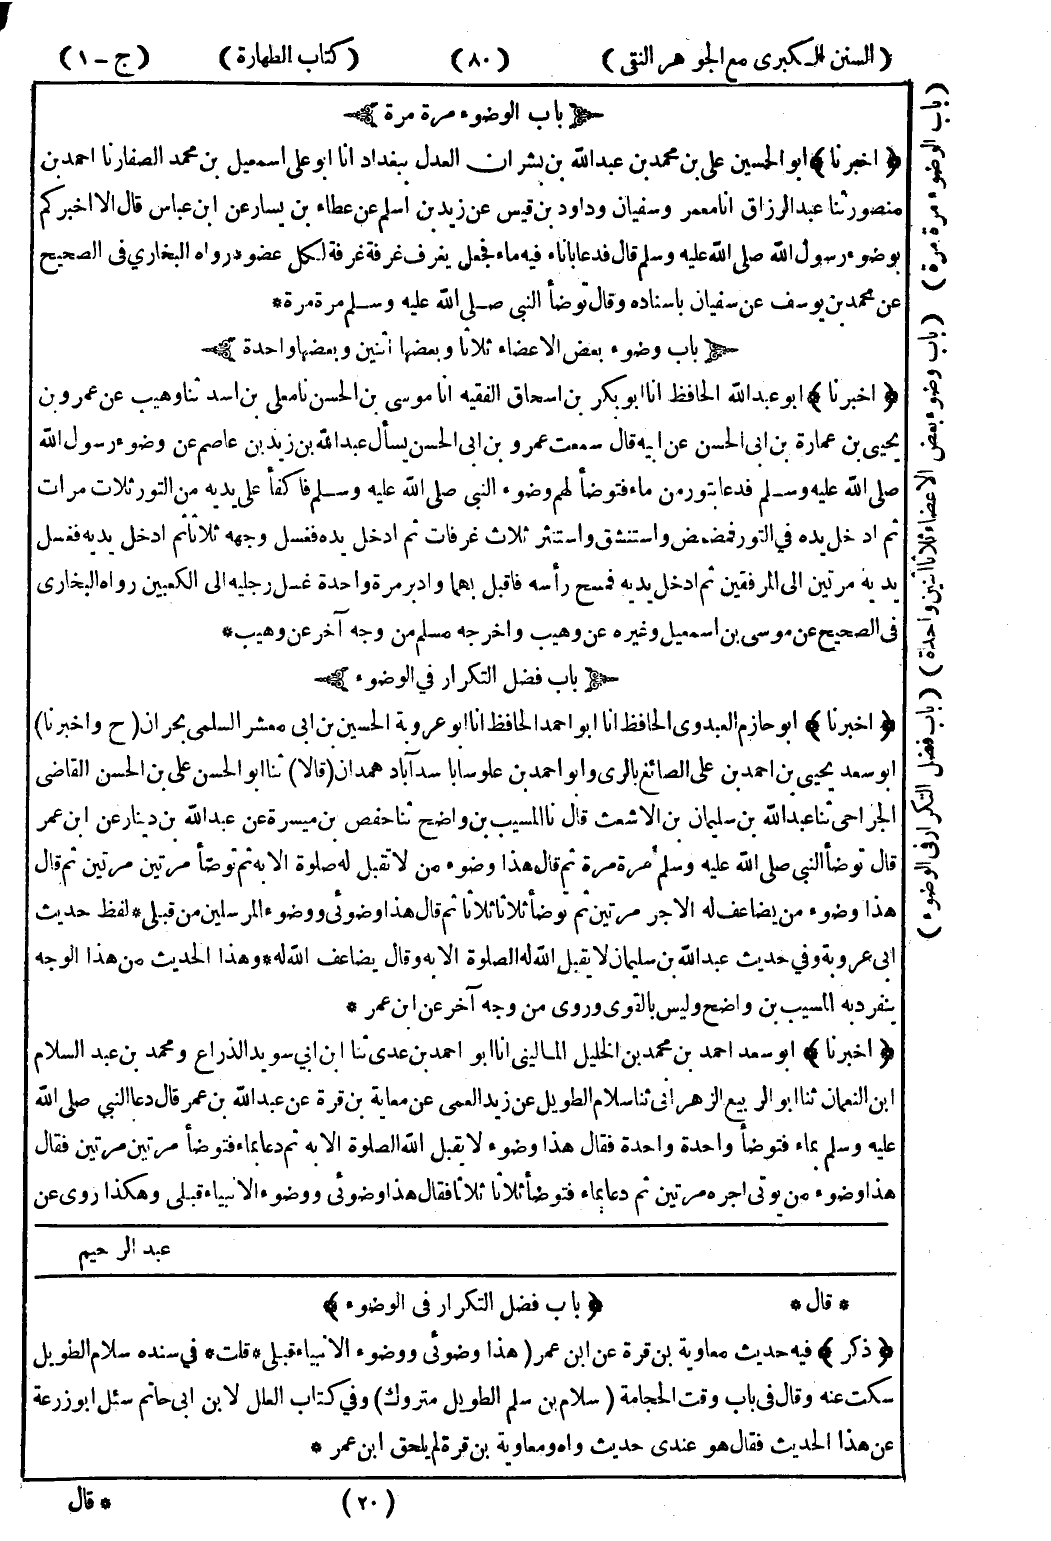 (السنن الكبرى مع الجوهر النقى) (٨٠) (كتاب الطهارة) (ج - ١)
باب الوضوء مرة مرة
﴿ اخبرنا ﴾ ابو الحسين على بن محمد بن عبد الله بن بشران العدل ببغداد انا ابو على اسمعيل بن محمد الصفار نا احمد بن
منصور ثنا عبد الرزاق انا معمر وسفيان وداود بن قيس عن زيد بن اسلم عن عطاء بن يسار عن ابن عباس قال الا اخبركم
بوضوء رسول الله صلى الله عليه وسلم قال فدعا باناء فيه ماء فجعل يغرف غرفة غرفة لكل عضو * رواه البخاري فى الصحيح
عن محمد بن يوسف عن سفيان باسناده وقال توضأ النبي صلى الله عليه وسلم مرة مرة *
باب وضوء بعض الاعضاء ثلاثا وبعضها اثنين وبعضها واحدة
﴿ اخبرنا ﴾ ابو عبد الله الحافظ انا ابو بكر بن اسحاق الفقيه انا موسى بن الحسن نا معلى بن اسد ثنا وهيب عن عمرو بن
يحيى بن عمارة بن ابى الحسن عن ابيه قال سمعت عمرو بن ابى الحسن يسأل عبد الله بن زيد بن عاصم عن وضوء رسول الله
صلى الله عليه وسلم فدعا بتور من ماء فتوضأ لهم وضوء النبي صلى الله عليه وسلم فاكفأ على يديه من التور ثلاث مرات
ثم ادخل يده في التور فمضمض واستنشق واستنثر ثلاث غرفات ثم ادخل يده فغسل وجهه ثلاثا ثم ادخل يديه فغسل
يديه مرتين الى المرفقين ثم ادخل يديه فمسح رأسه فاقبل بهما وادبر مرة واحدة غسل رجليه الى الكعبين رواه البخارى
فى الصحيح عن موسى بن اسمعيل وغيره عن وهيب واخرجه مسلم من وجه آخر عن وهيب *
باب فضل التكرار في الوضوء
﴿ اخبرنا ﴾ ابو حازم العبدوى الحافظ انا ابو احمد الحافظ انا ابو عروبة الحسين بن ابى معشر السلمى بحران (ح واخبرنا)
ابو سعد يحيى بن احمد بن على الصائغ بالرى وابو احمد بن علوسا باسدآباد همدان (قالا) ثنا ابو الحسن على بن الحسن القاضى
الجراحى ثنا عبد الله بن سليمان بن الاشعث قال نا المسيب بن واضح ثنا حفص بن ميسرة عن عبد الله بن دينار عن ابن عمر
قال توضأ النبي صلى الله عليه وسلم مرة مرة ثم قال هذا وضوء من لا تقبل له صلوة الا به ثم توضأ مرتين مرتين ثم قال
هذا وضوء من يضاعف له الاجر مرتين ثم توضأ ثلاثا ثلاثا ثم قال هذا وضوئى ووضوء المرسلين من قبلى * لفظ حديث
ابى عروبة وفي حديث عبد الله بن سليمان لا يقبل الله له الصلوة الا به وقال يضاعف الله له * وهذا الحديث من هذا الوجه
ينفرد به المسيب بن واضح وليس بالقوى وروى من وجه آخر عن ابن عمر *
﴿ اخبرنا ﴾ ابو سعد احمد بن محمد بن الخليل المالينى انا ابو احمد بن عدى ثنا ابن ابي سويد الذراع ومحمد بن عبد السلام
ابن النعمان ثنا ابو الربيع الزهرانى ثنا سلام الطويل عن زيد العمى عن معاية بن قرة عن عبد الله بن عمر قال دعا النبي صلى الله
عليه وسلم بماء فتوضأ واحدة واحدة فقال هذا وضوء لا يقبل الله الصلوة الا به ثم دعا بماء فتوضأ مرتين مرتين فقال
هذا وضوء من يوتى اجره مرتين ثم دعا بماء فتوضأ ثلاثا ثلاثا فقال هذا وضوئى ووضوء الانبياء قبلى وهكذا روى عن
عبد الرحيم
* قال * ﴿ باب فضل التكرار فى الوضوء ﴾
﴿ ذكر ﴾ فيه حديث معاوية بن قرة عن ابن عمر (هذا وضوئى ووضوء الانبياء قبلى * قلت * في سنده سلام الطويل
سكت عنه وقال فى باب وقت الحجامة (سلام بن سلم الطويل متروك) وفي كتاب العلل لابن ابى حاتم سئل ابو زرعة
عن هذا الحديث فقال هو عندى حديث واه ومعاوية بن قرة لم يلحق ابن عمر *
(٢٠) * قال
(باب الوضوء مرة مرة) (باب وضوء بعض الاعضاء ثلاثا اثنين واحدة) (باب فضل التكرار فى الوضوء)